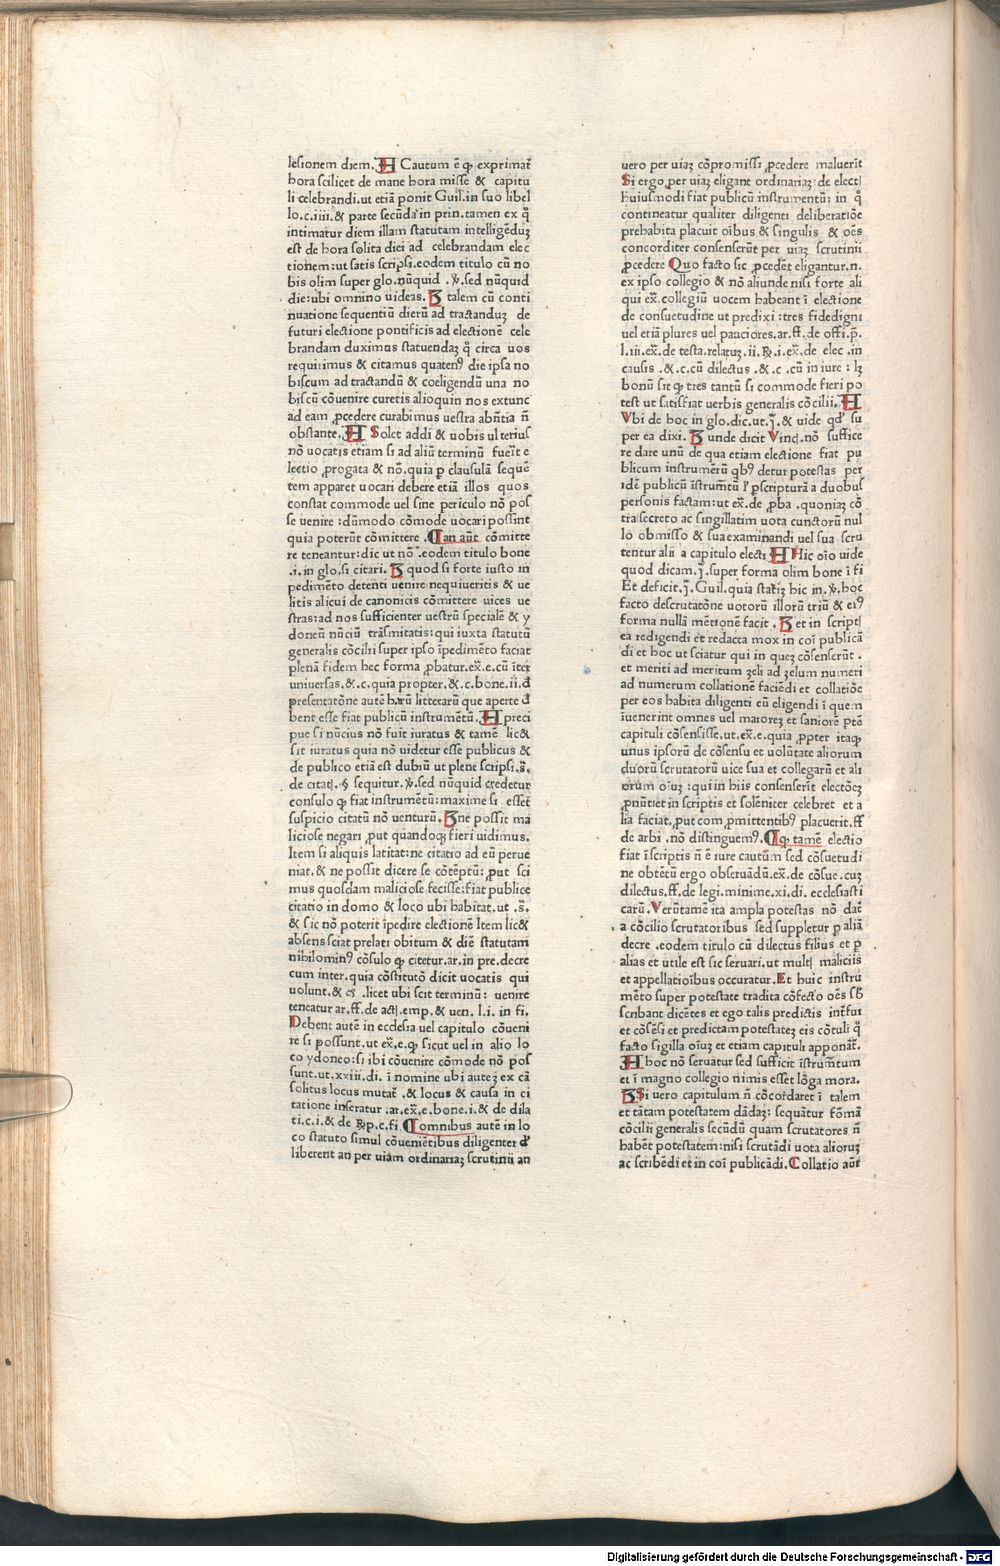 lesionem diem. A Cautum ē ꝙ exprimat᷑
hora scilicet de mane hora misse & capitu
li celebrandi.ut etiā ponit Guil.in suo libel
lo.c.iiii.& parte secūda in prin.tamen ex q̄
intimatur diem illam statutam intelligēduȝ
est de hora solita dici ad celebrandam elec
tionem:ut satis scripsi.eodem titulo cū no
bis olim super glo.nūquid .℣.sed nūquid
die:ubi omnino uideas. B talem cū conti
nuatione sequentiū dierū ad tractanduȝ de
futuri electione pontificis ad electionē cele
brandam duximus statuendaȝ q̄ circa uos
requirimus & citamus quatenꝰ die ipsa no
biscum ad tractandū & coeligendū una no
biscū cōuenire curetis alioquin nos extunc
ad eam ꝓcedere curabimus uestra abn̄tia n̄
obstante. A Solet addi & uobis ulterius
nō uocatis etiam si ad aliū terminū fueīt e
lectio ꝓrogata & nō.quia ꝑ clausulā sequē
tem apparet uocari debere etiā illos quos
constat commode uel sine periculo nō pos
se uenire :dūmodo cōmode uocari possint
quia poterūt cōmittere . C an aūt cōmitte
re teneantur:dic ut nō .eodem titulo bone
.i.in glo.si citari. B quod si forte iusto in
pedimēto detenti uenire nequiueritis & ue
litis alicui de canonicis cōmittere uices ue
stras:ad nos sufficienter uestrū specialē & y
doneū nūciū trāsmitatis:qui iuxta statutū
generalis cōcilii super ipso īpedimēto faciat
plenā fidem hec forma ꝓbatur.ex̄.e.cū īter
uniuersas.&.c.quia propter.&.c.bone.ii.d̄
presentatōne autē harū litterarū que aperte d̄
bent esse fiat publicū instrumētū. A preci
pue si nūcius nō fuit iuratus & tamē lic&
sit iuratus quia nō uidetur esse publicus &
de publico etiā est dubiū ut plene scripsi.s̄.
de citatꝭ.§ sequitur.℣.sed nūquid credetur
consulo ꝙ fiat instrumētū:maxime si esset
suspicio citatū nō uenturū. B ne possit ma
liciose negari ꝓut quandoqȝ fieri uidimus.
Item si aliquis latitat:ne citatio ad eū perue
niat.& ne possit dicere se cōtēptū:ꝓut sci
mus quosdam maliciose fecisse:fiat publice
citatio in domo & loco ubi habitat.ut .s̄.
& sic nō poterit īpedire electionē Item lic&
absens sciat prelati obitum & diē statutam
nihilominꝰ cōsulo ꝙ citetur.ar.in pre.decre
cum inter.quia cōstitutō dicit uocatis qui
uolunt.& .licet ubi scit terminū: uenire
teneatur ar.ff.de actꝭ.emp.& uen. l.i. in fi.
Debent autē in ecclesia uel capitulo cōueni
re si possunt.ut ex̄.e.ꝙ sicut uel in alio lo
co ydoneo:si ibi cōuenire cōmode nō pos
sunt.ut.xxiii.di.ī nomine ubi autez ex cā
solitus locus mutat᷑ .& locus & causa in ci
tatione inseratur .ar.ex̄.e.bone.i.& de dila
ti.c.i.& de .p.c.fi. C omnibus autē in lo
co statuto simul cōueniētibus diligenter d̄
liberent an per uiam ordinariaȝ scrutinii an
uero per uiaȝ cōpromissi ꝓcedere maluerīt
Si ergo per uiaȝ eligant ordinariaȝ:de electꝭ
huiusmodi fiat publicū instrumentū: in q̄
contineatur qualiter diligenti deliberatiōe
prehabita placuit oībus & singulis & oēs
concorditer consenserūt per uiaȝ scrutinii
ꝓcedere Quo facto sic ꝓcedēt eligantur.n.
ex ipso collegio & nō aliunde nisi forte ali
qui ex̄.collegiū uocem habeant ī electione
de consuetudine ut predixi :tres fidedigni
uel etiā plures uel pauciores.ar.ff.de offi.p̄.
l.iii.ex̄.de testa.relatuȝ.ii. .i.ex̄.de elec .in
causis .&.c.cū dilectus .& .c .cū in iure : lȝ
bonū sit ꝙ tres tantū si commode fieri po
test ut satisfiat uerbis generalis cōcilii. A
Vbi de hoc in glo.dic.ut.ȷ̄.& uide qd' su
per ea dixi. B unde dicit Vincꝭ.nō suffice
re dare unū de qua etiam electione fiat pu
blicum instrumētū qbꝰ detur potestas per
idē publicū īstrum̄tū ł ꝓscripturā a duobus
personis factam:ut ex̄.de ꝓba .quoniaȝ cō
tra:secreto ac singillatim uota cunctorū nul
lo obmisso & sua examinandi uel sua scru
tentur alii a capitulo electi A Hic oīo uide
quod dicam.ȷ̄.super forma olim bone ī fi
Et deficit.ȷ̄.Guil.quia statiȝ hic in.℣.hoc
facto descrutatōne uotorū illorū triū & eiꝰ
forma nullā mētionē facit . B et in scriptꝭ
ea redigendi et redacta mox in coī publicā
di et hoc ut sciatur qui in queȝ cōsenserūt .
et meriti ad meritum zeli ad zelum numeri
ad numerum collationē faciēdi et collatiōe
per eos habita diligenti eū eligendi ī quem
īuenerint omnes uel maiorez et saniorē ptē
capituli cōsensisse.ut.ex̄.e.quia ꝓpter itaqȝ
unus ipsorū de cōsensu et uolūtate aliorum
duorū scrutatorū uice sua et collegarū et ali
orum oīuȝ :qui in hiis consenserīt electōeȝ
ꝓnūtiet in scriptis et solēniter celebret et a
lia faciat.ꝓut com ꝓmittentibꝰ placuerit.ff
de arbi .nō distinguemꝰ. C ꝙ tamē electio
fiat īscriptis n̄ ē iure cautūm sed cōsuetudi
ne obtētū ergo obseruādū.ex̄.de cōsue.cuȝ
dilectus.ff.de legi.minime.xi.di. ecclesiasti
carū.Verūtamē ita ampla potestas nō dat᷑
a cōcilio scrutatoribus sed suppletur ꝑ aliā
decre .eodem titulo cū dilectus filius et ꝑ
alias et utile est sic seruari.ut mulꝭ maliciis
et appellatioībus occuratur.Et huic instru
mēto super potestate tradita cōfecto oēs sb̄
scribant dicētes et ego talis predictis int̄fui
et cōsēsi et predictam potestateȝ eis cōtuli q̄
facto sigilla oīuȝ et etiam capituli apponāt᷑.
A hoc nō seruatur sed sufficit īstrum̄tum
et ī magno collegio nimis esset lōga mora.
B Si uero capitulum n̄ cōcordaret ī talem
et tātam potestatem dādaȝ: sequātur fōmā
cōcilii generalis secūdū quam scrutatores n̄
habēt potestatem:nisi scrutādi uota alioruȝ
ac scribēdi et in coī publicādi.Collatio aūt
Digitalisierung gefördert durch die Deutsche Forschungsgemeinschaft - DFG